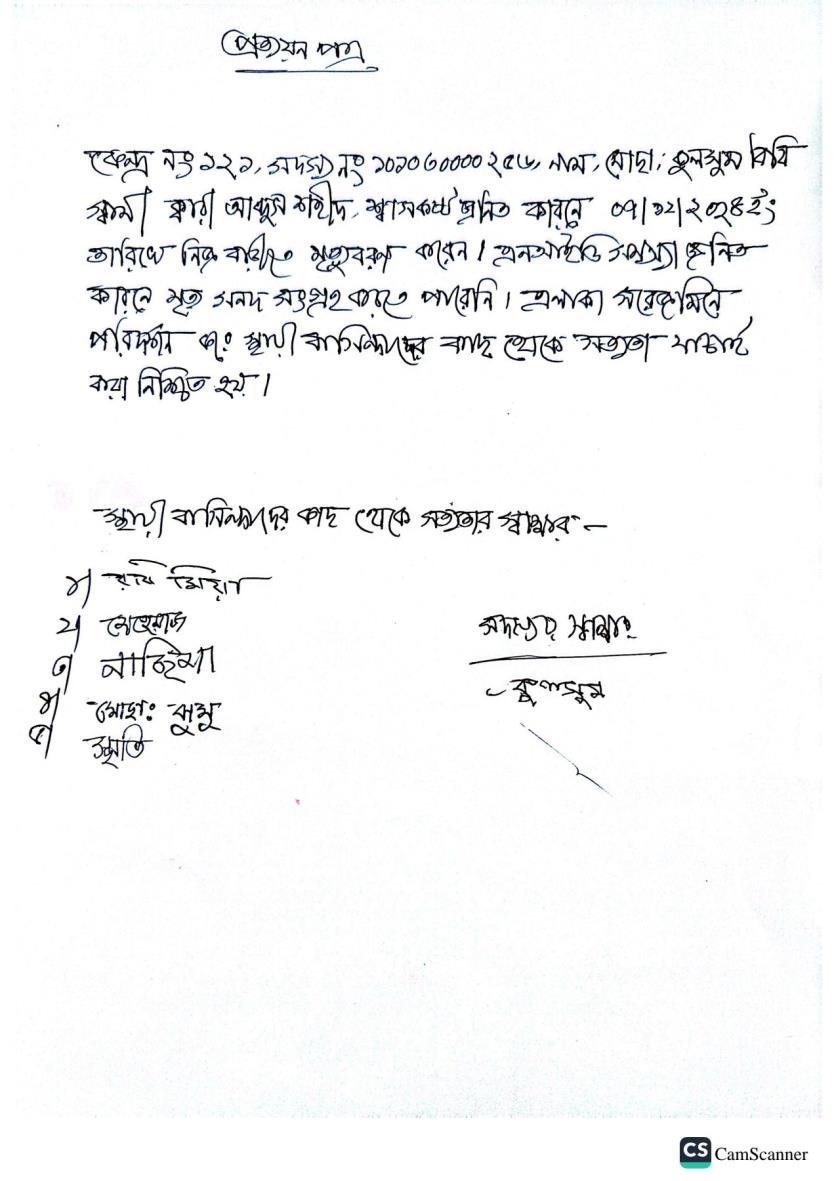 প্রত্যয়ন পত্র
কেন্দ্র নং ১২১, সদস্য নং ১০১০৬০০০০২৫৬, নাম, মোছা: কুলসুম বিবি
স্বামী ক্বারী আব্দুস শহীদ, শ্বাসকষ্ট জনিত কারনে ০৭/১২/২০২৪ইং
তারিখে নিজ বাড়ীতে মৃত্যুবরন করেন। এনআইডি সমস্যা জনিত
কারনে মৃত সনদ সংগ্রহ করতে পারেনি। এলাকা সরেজমিনে
পরিদর্শন এবং স্থায়ী বাসিন্দাদের কাছ থেকে সত্যতা যাচাই
করা নিশ্চিত হয়।
স্থায়ী বাসিন্দাদের কাছ থেকে সত্যতার স্বাক্ষর –
১| রবি মিয়া
২| মেহেরাজ
৩| নাছিমা
৪| মোছা: ঝুমু
৫| স্মৃতি
সদস্যের স্বাক্ষর
কুলসুম
CS CamScanner